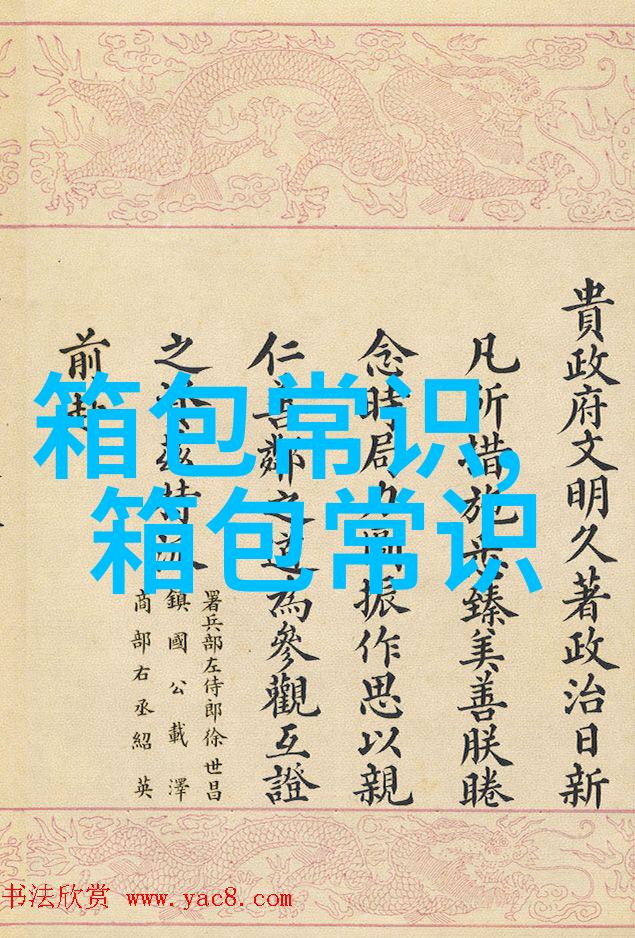 箱包常识，
箱包常识
貴政府文明久著政治日新
凡所措施悉臻美善朕睠
念時局力圖振作思以親
仁善鄰之道為參觀互證
之茲特派
署兵部左侍郎徐世昌
鎮國公載澤
商部右丞紹英
前赴
书法欣赏 www.yac8.com